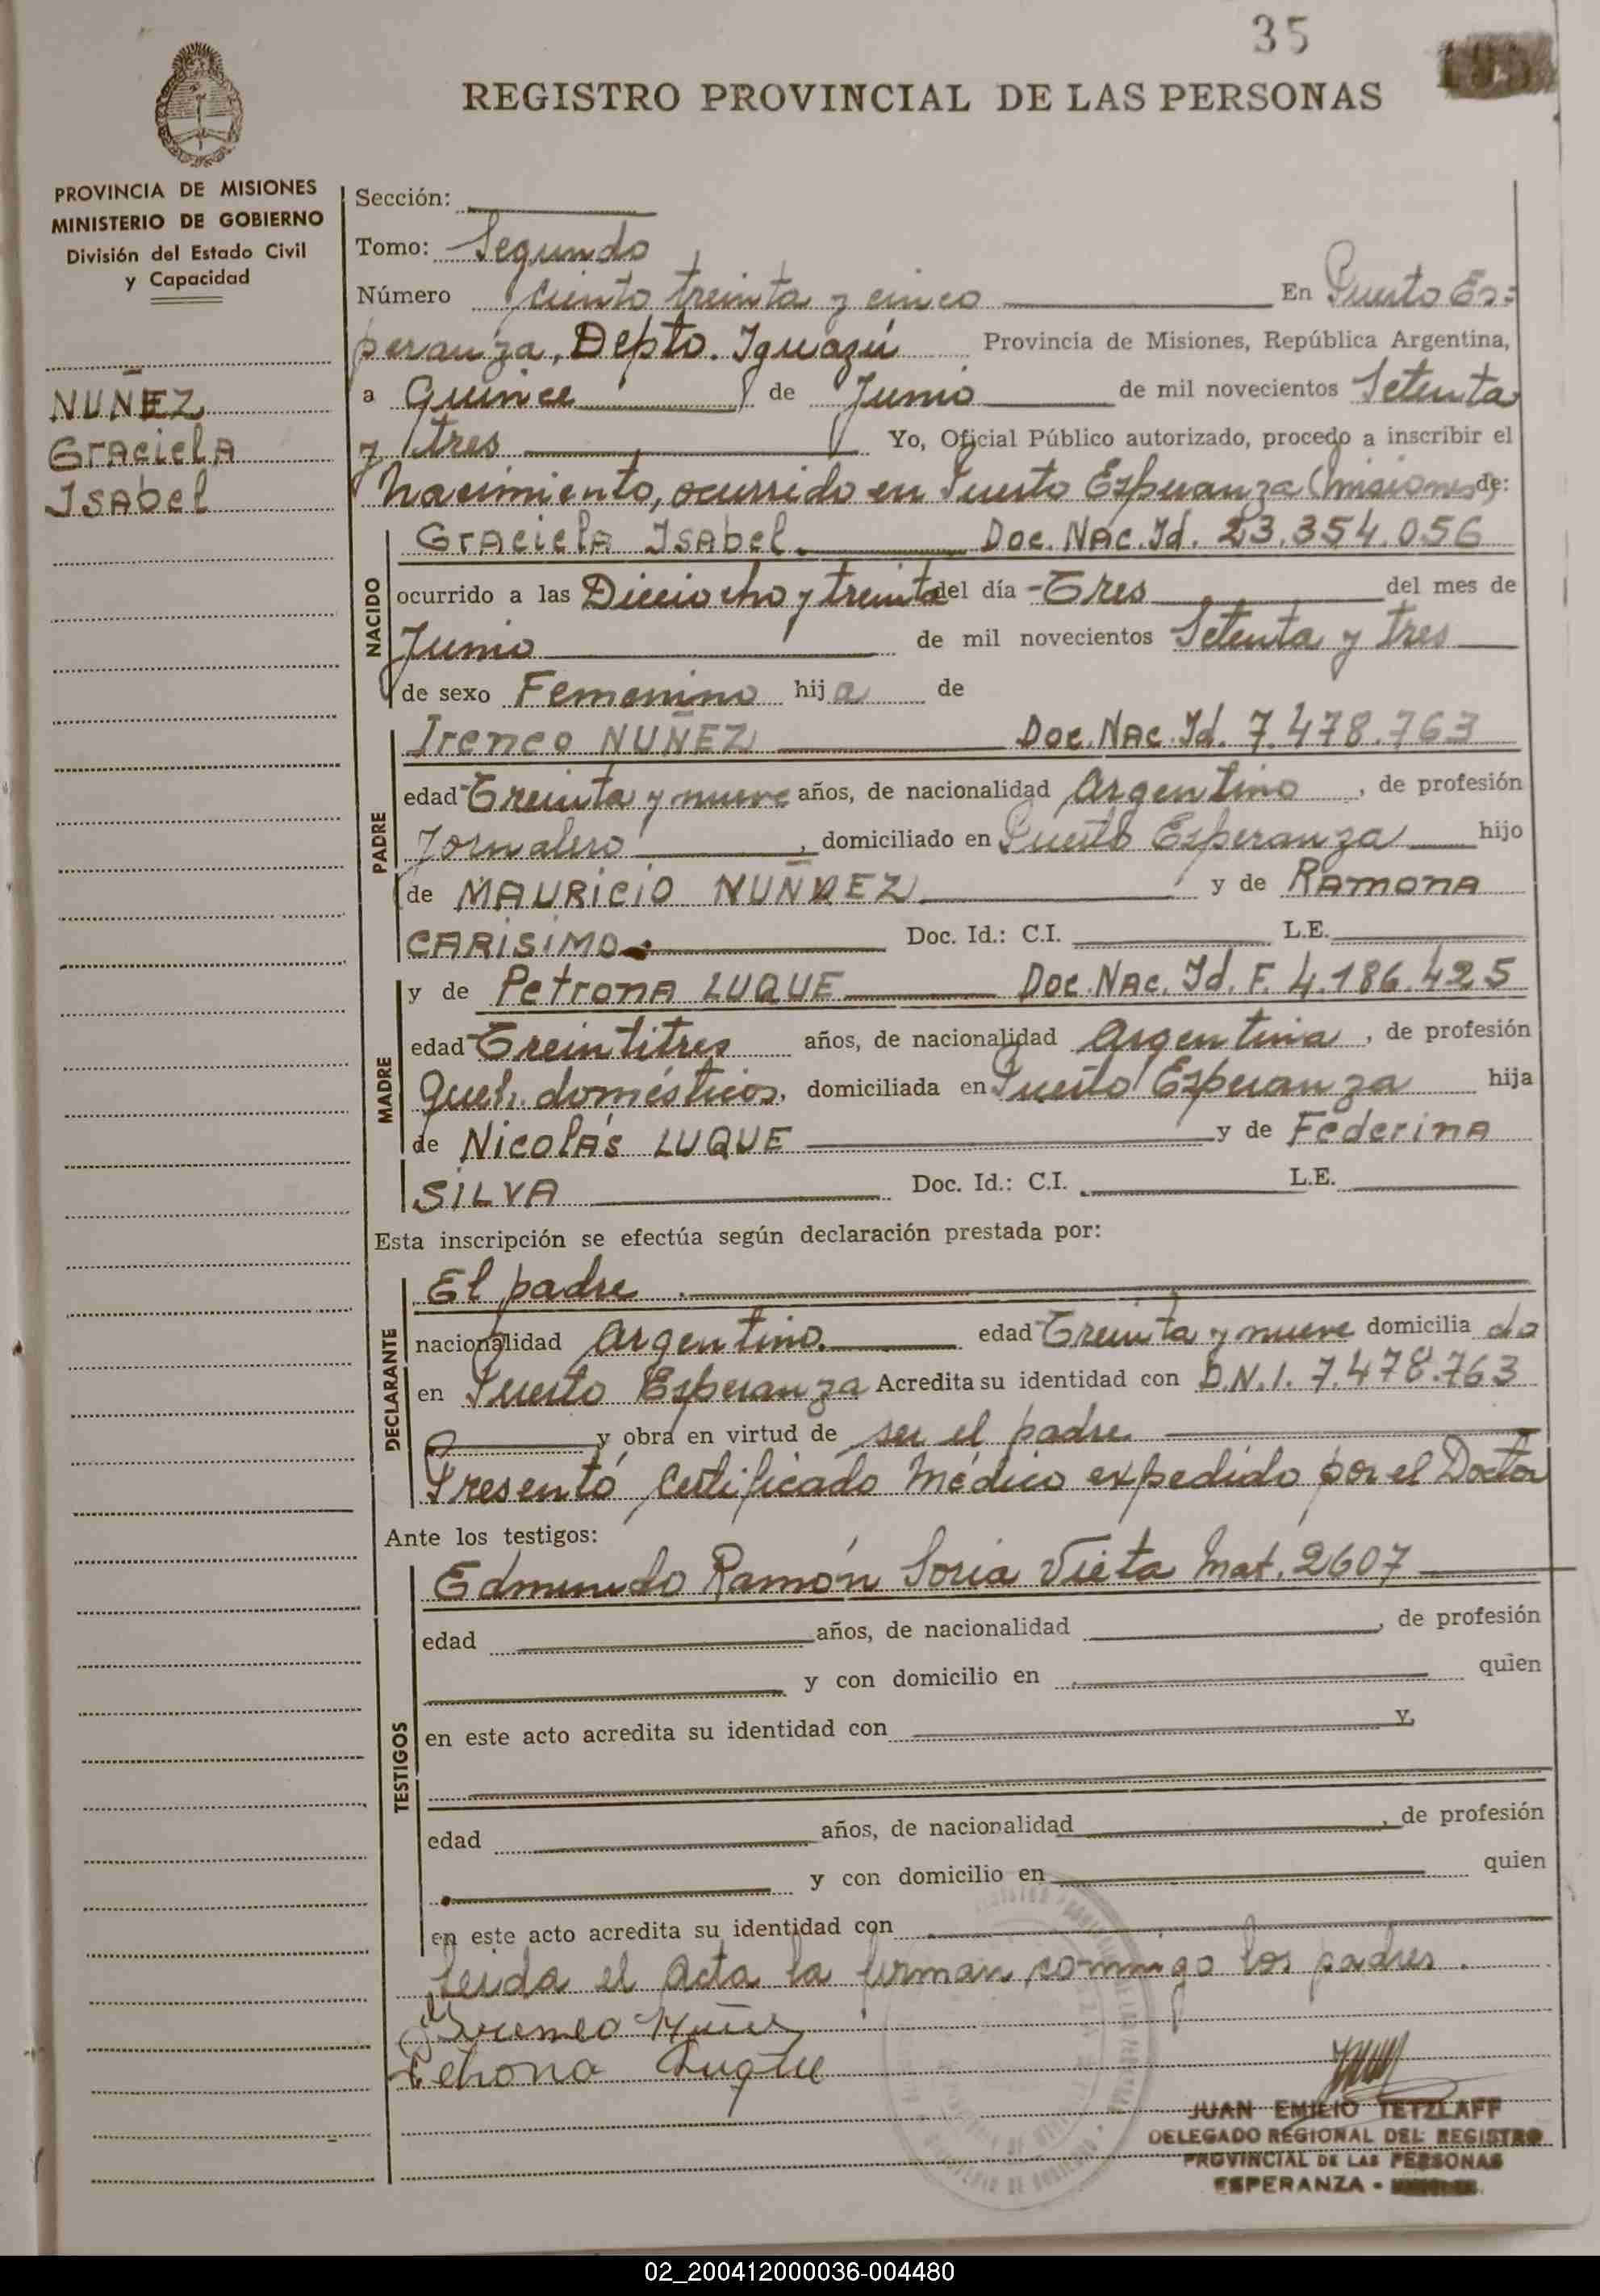 35
REGISTRO PROVINCIAL DE LAS PERSONAS
PROVINCIA DE MISIONES
MINISTERIO DE GOBIERNO
División del Estado Civil
y Capacidad
NUÑEZ
Graciela
Isabel
Sección:
Tomo: Segundo
Número ciento treinta y cinco En Puerto Es=
peranza, Depto. Iguazú Provincia de Misiones, República Argentina,
a Quince de Junio de mil novecientos Setenta
y tres Yo, Oficial Público autorizado, procedo a inscribir el
Nacimiento, ocurrido en Puerto Esperanza (Misiones) de:
NACIDO
Graciela Isabel. Doc. Nac. Id. 23.354.056
ocurrido a las Dieciocho y treinta del día Tres del mes de
Junio de mil novecientos Setenta y tres
de sexo Femenino hija de
PADRE
Ireneo NUÑEZ Doc. Nac. Id. 7.478.763
edad Treinta y nueve años, de nacionalidad Argentino, de profesión
Jornalero, domiciliado en Puerto Esperanza hijo
de MAURICIO y de RAMONA
CARISIMO Doc. Id.: C.I. L.E.
MADRE
y de Petrona LUQUE Doc. Nac. Id. F. 4.186.425
edad Treintitres años, de nacionalidad Argentina, de profesión
Queh. domésticos, domiciliada en Puerto Esperanza hija
de Nicolás LUQUE y de Federina
SILVA Doc. Id.: C.I. L.E.
Esta inscripción se efectúa según declaración prestada por:
DECLARANTE
El padre
nacionalidad Argentino. edad Treinta y nueve domicilia do
en Puerto Esperanza Acredita su identidad con D.N.I. 7.478.763
y obra en virtud de ser el padre
Presentó Certificado Médico expedido por el Doctor
Ante los testigos:
TESTIGOS
Edmundo Ramón Soria Vieta Mat. 2607
edad años, de nacionalidad , de profesión
y con domicilio en quien
en este acto acredita su identidad con y,
edad años, de nacionalidad , de profesión
y con domicilio en quien
en este acto acredita su identidad con
Leida el Acta la firman conmigo los padres.
Ireneo Nuñez
Petrona Luque
JUAN EMILIO TETZLAFF
DELEGADO REGIONAL DEL REGISTRO
PROVINCIAL DE LAS PERSONAS
ESPERANZA -
02_200412000036-004480